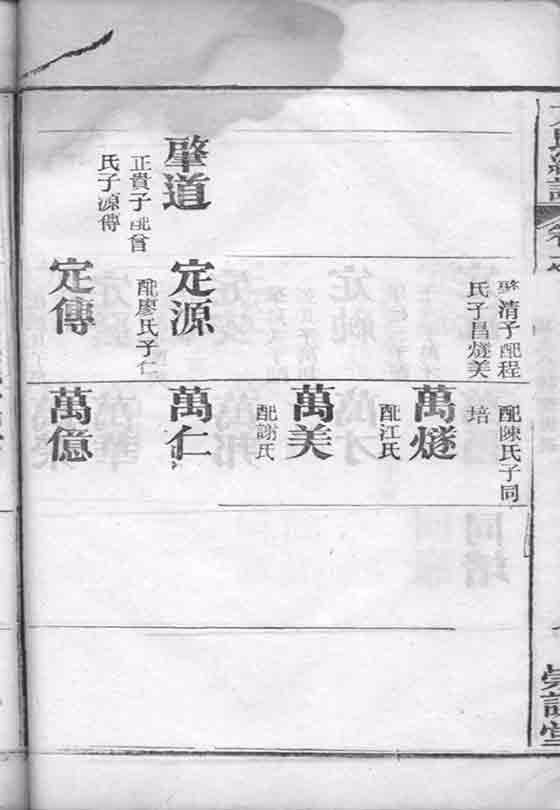 清子配程
氏子昌燧美
肈道
正貴子配曾
氏子源傳
定源
配廖氏子仁
定傳
配陳氏子同
培
萬燧
配江氏
萬美
配謝氏
萬仁
萬億